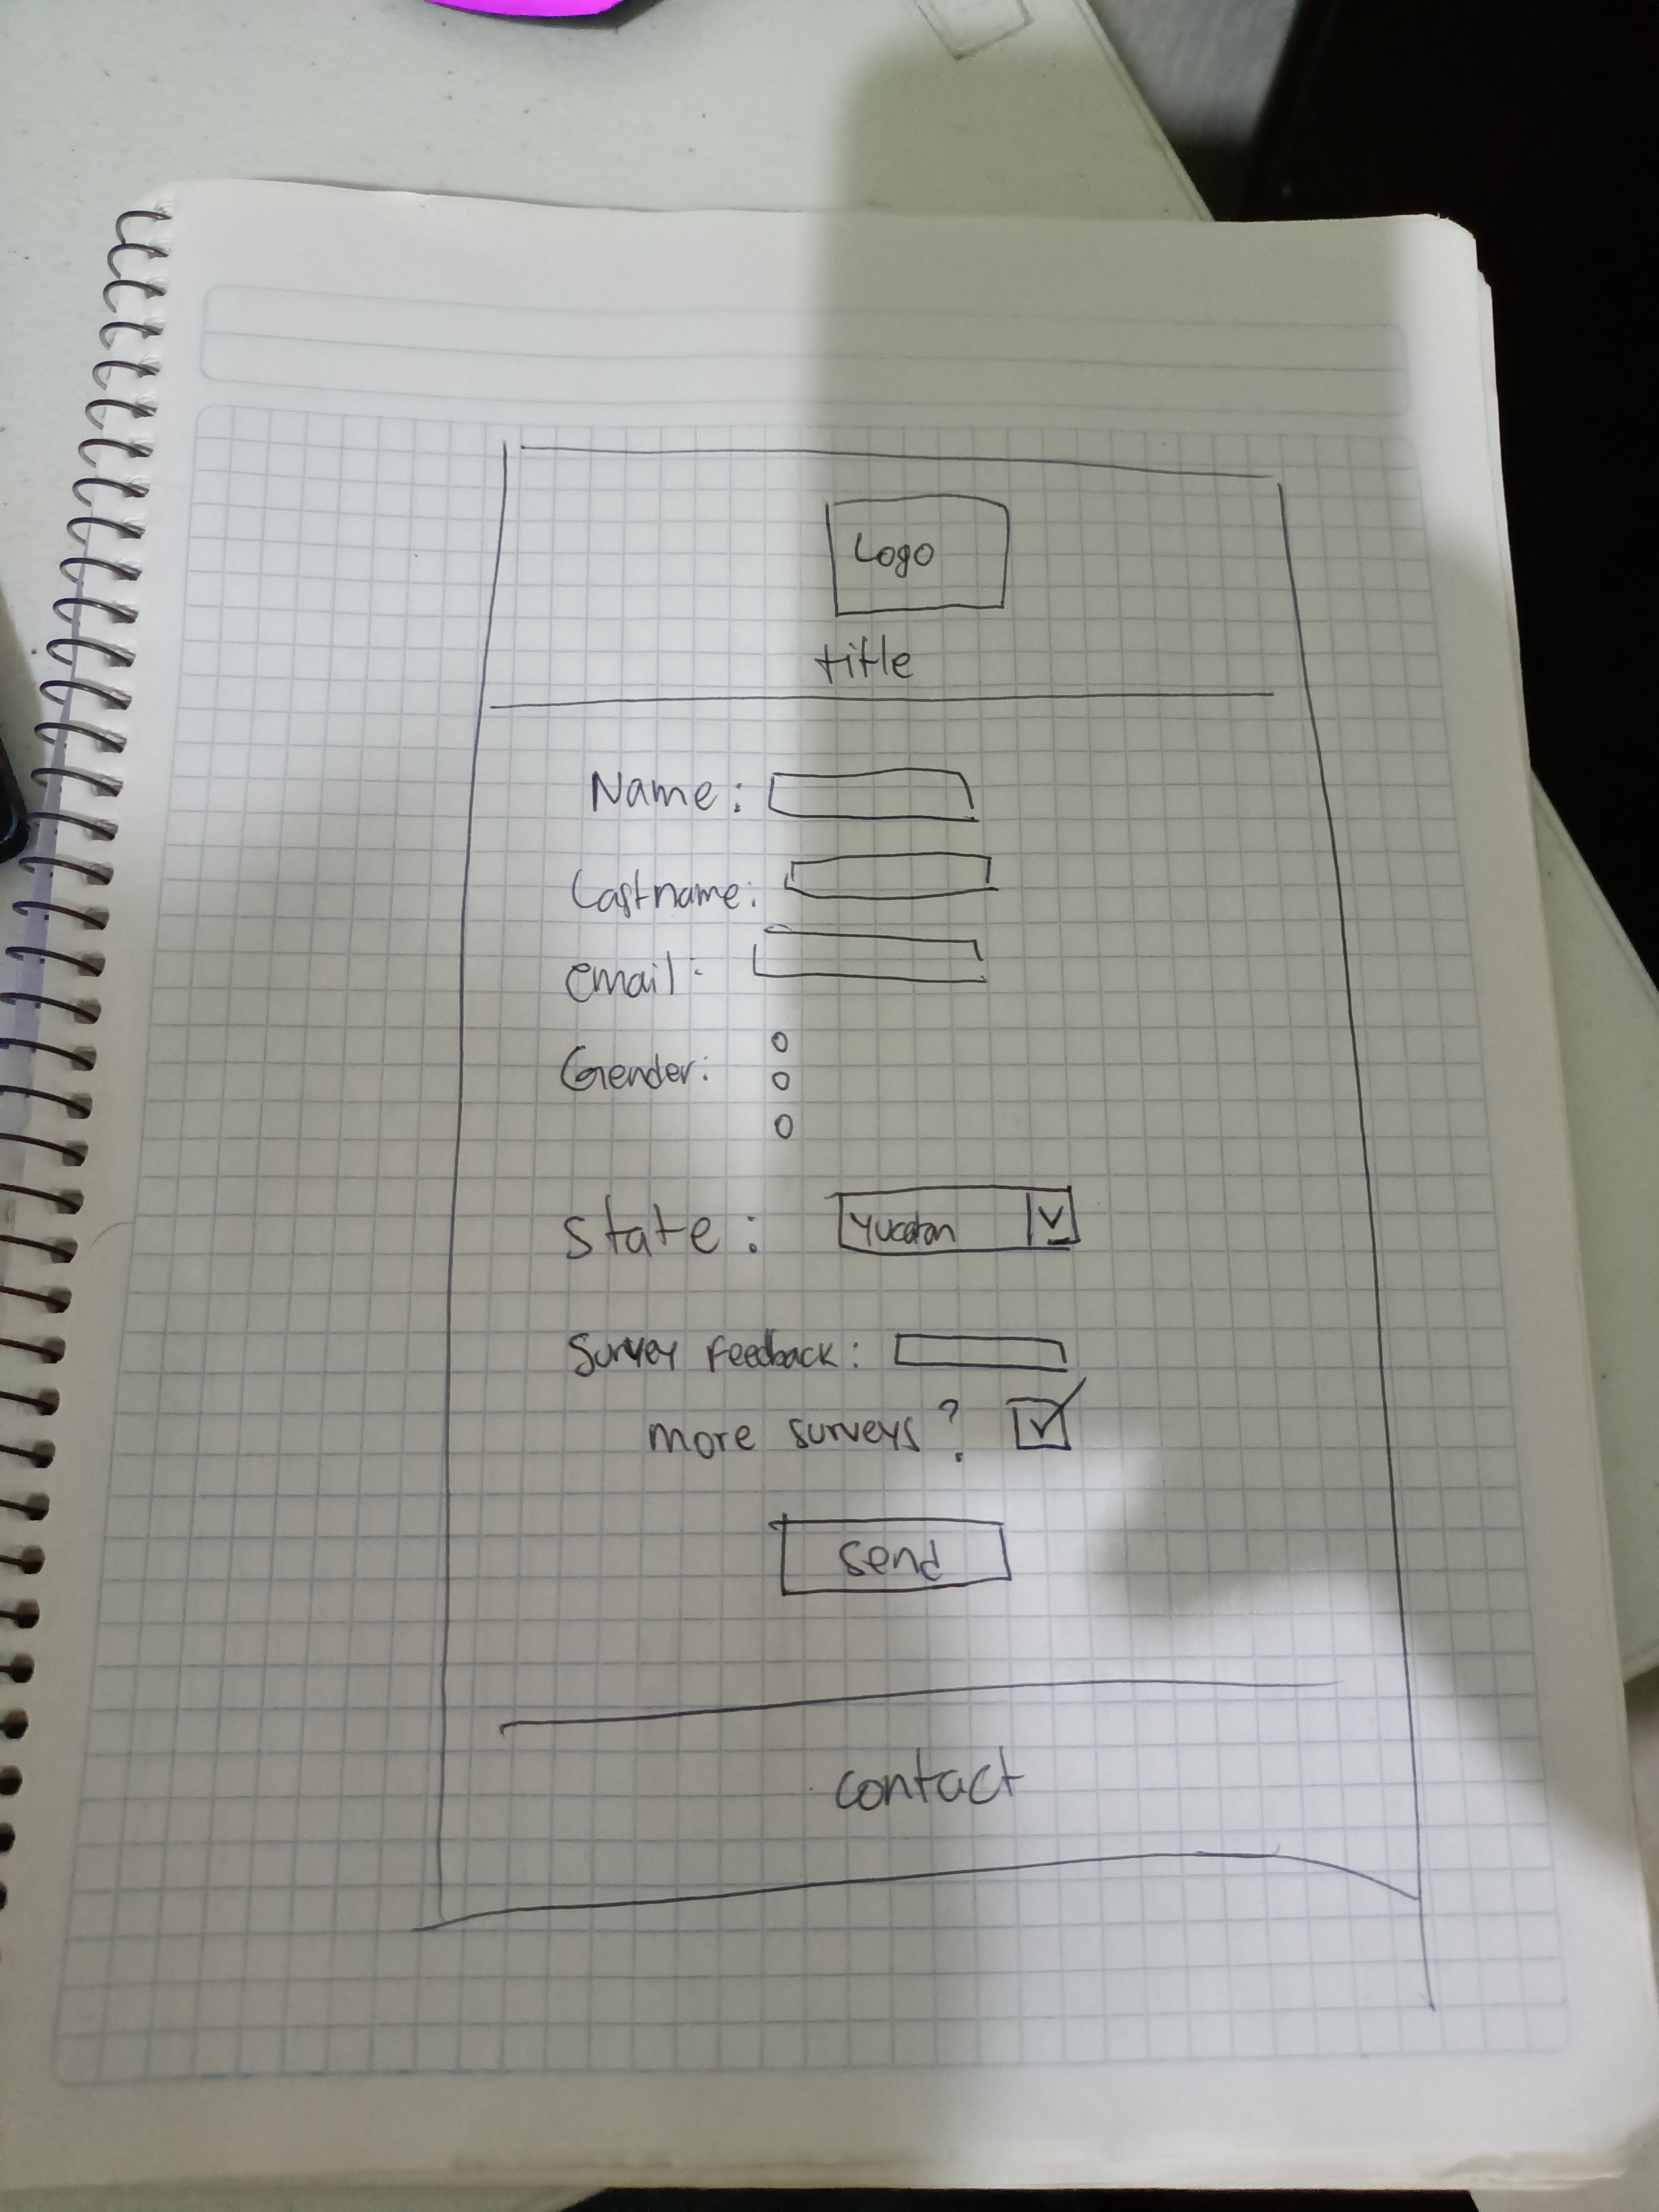 Logo
title
Name:
Lastname:
email:
Gender:
state:
Yucatan
survey Feedback:
more surveys?
send
contact